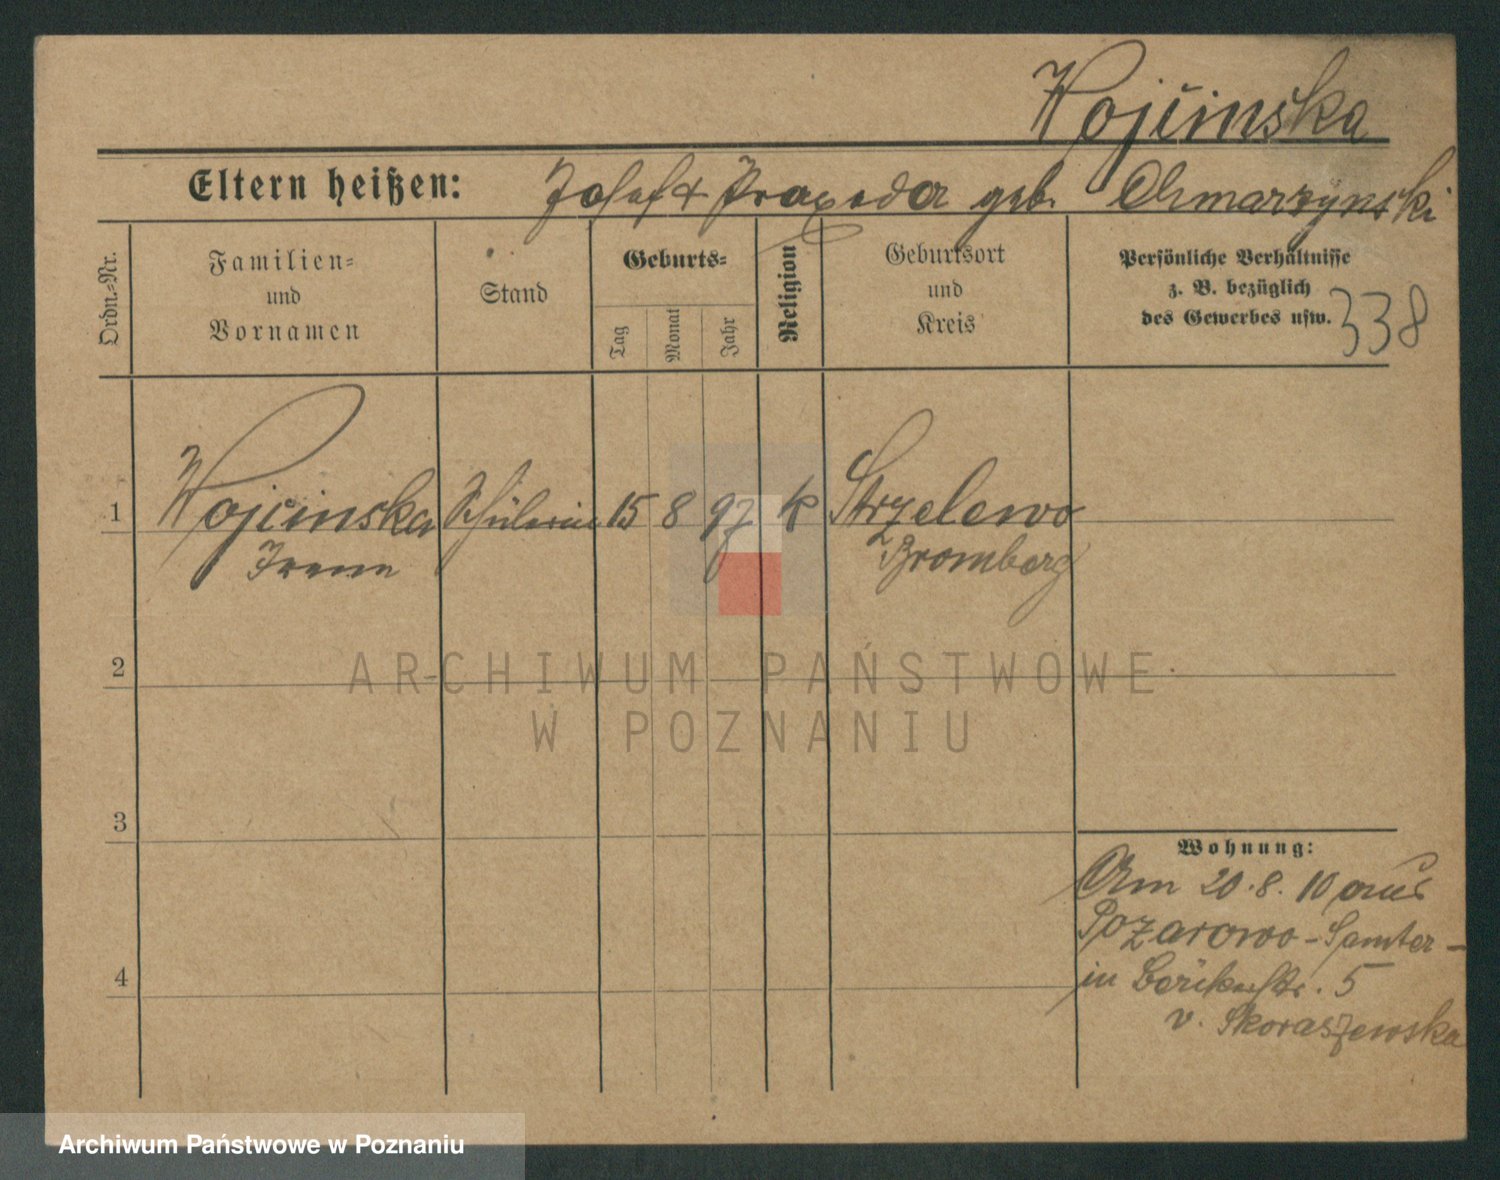 Wojcinska
Eltern heißen: Josef + Praxeda geb. Chmarzynski
Ordn.-Nr.
Familien-
und
Vornamen
Stand
Geburts-
Tag
Monat
Jahr
Religion
Geburtsort
und
Kreis
Persönliche Verhältnisse
z. B. bezüglich
des Gewerbes usw.
338
1 Wojcinska Schülerin 15 8 97 k Strzelewo
Irene Bromberg
2
3
4
Wohnung:
Am 20.8.10 aus
Pozarowo - Samter -
in Bäckerstr. 5
v. Skoraszewska
ARCHIWUM PAŃSTWOWE
W POZNANIU
Archiwum Państwowe w Poznaniu